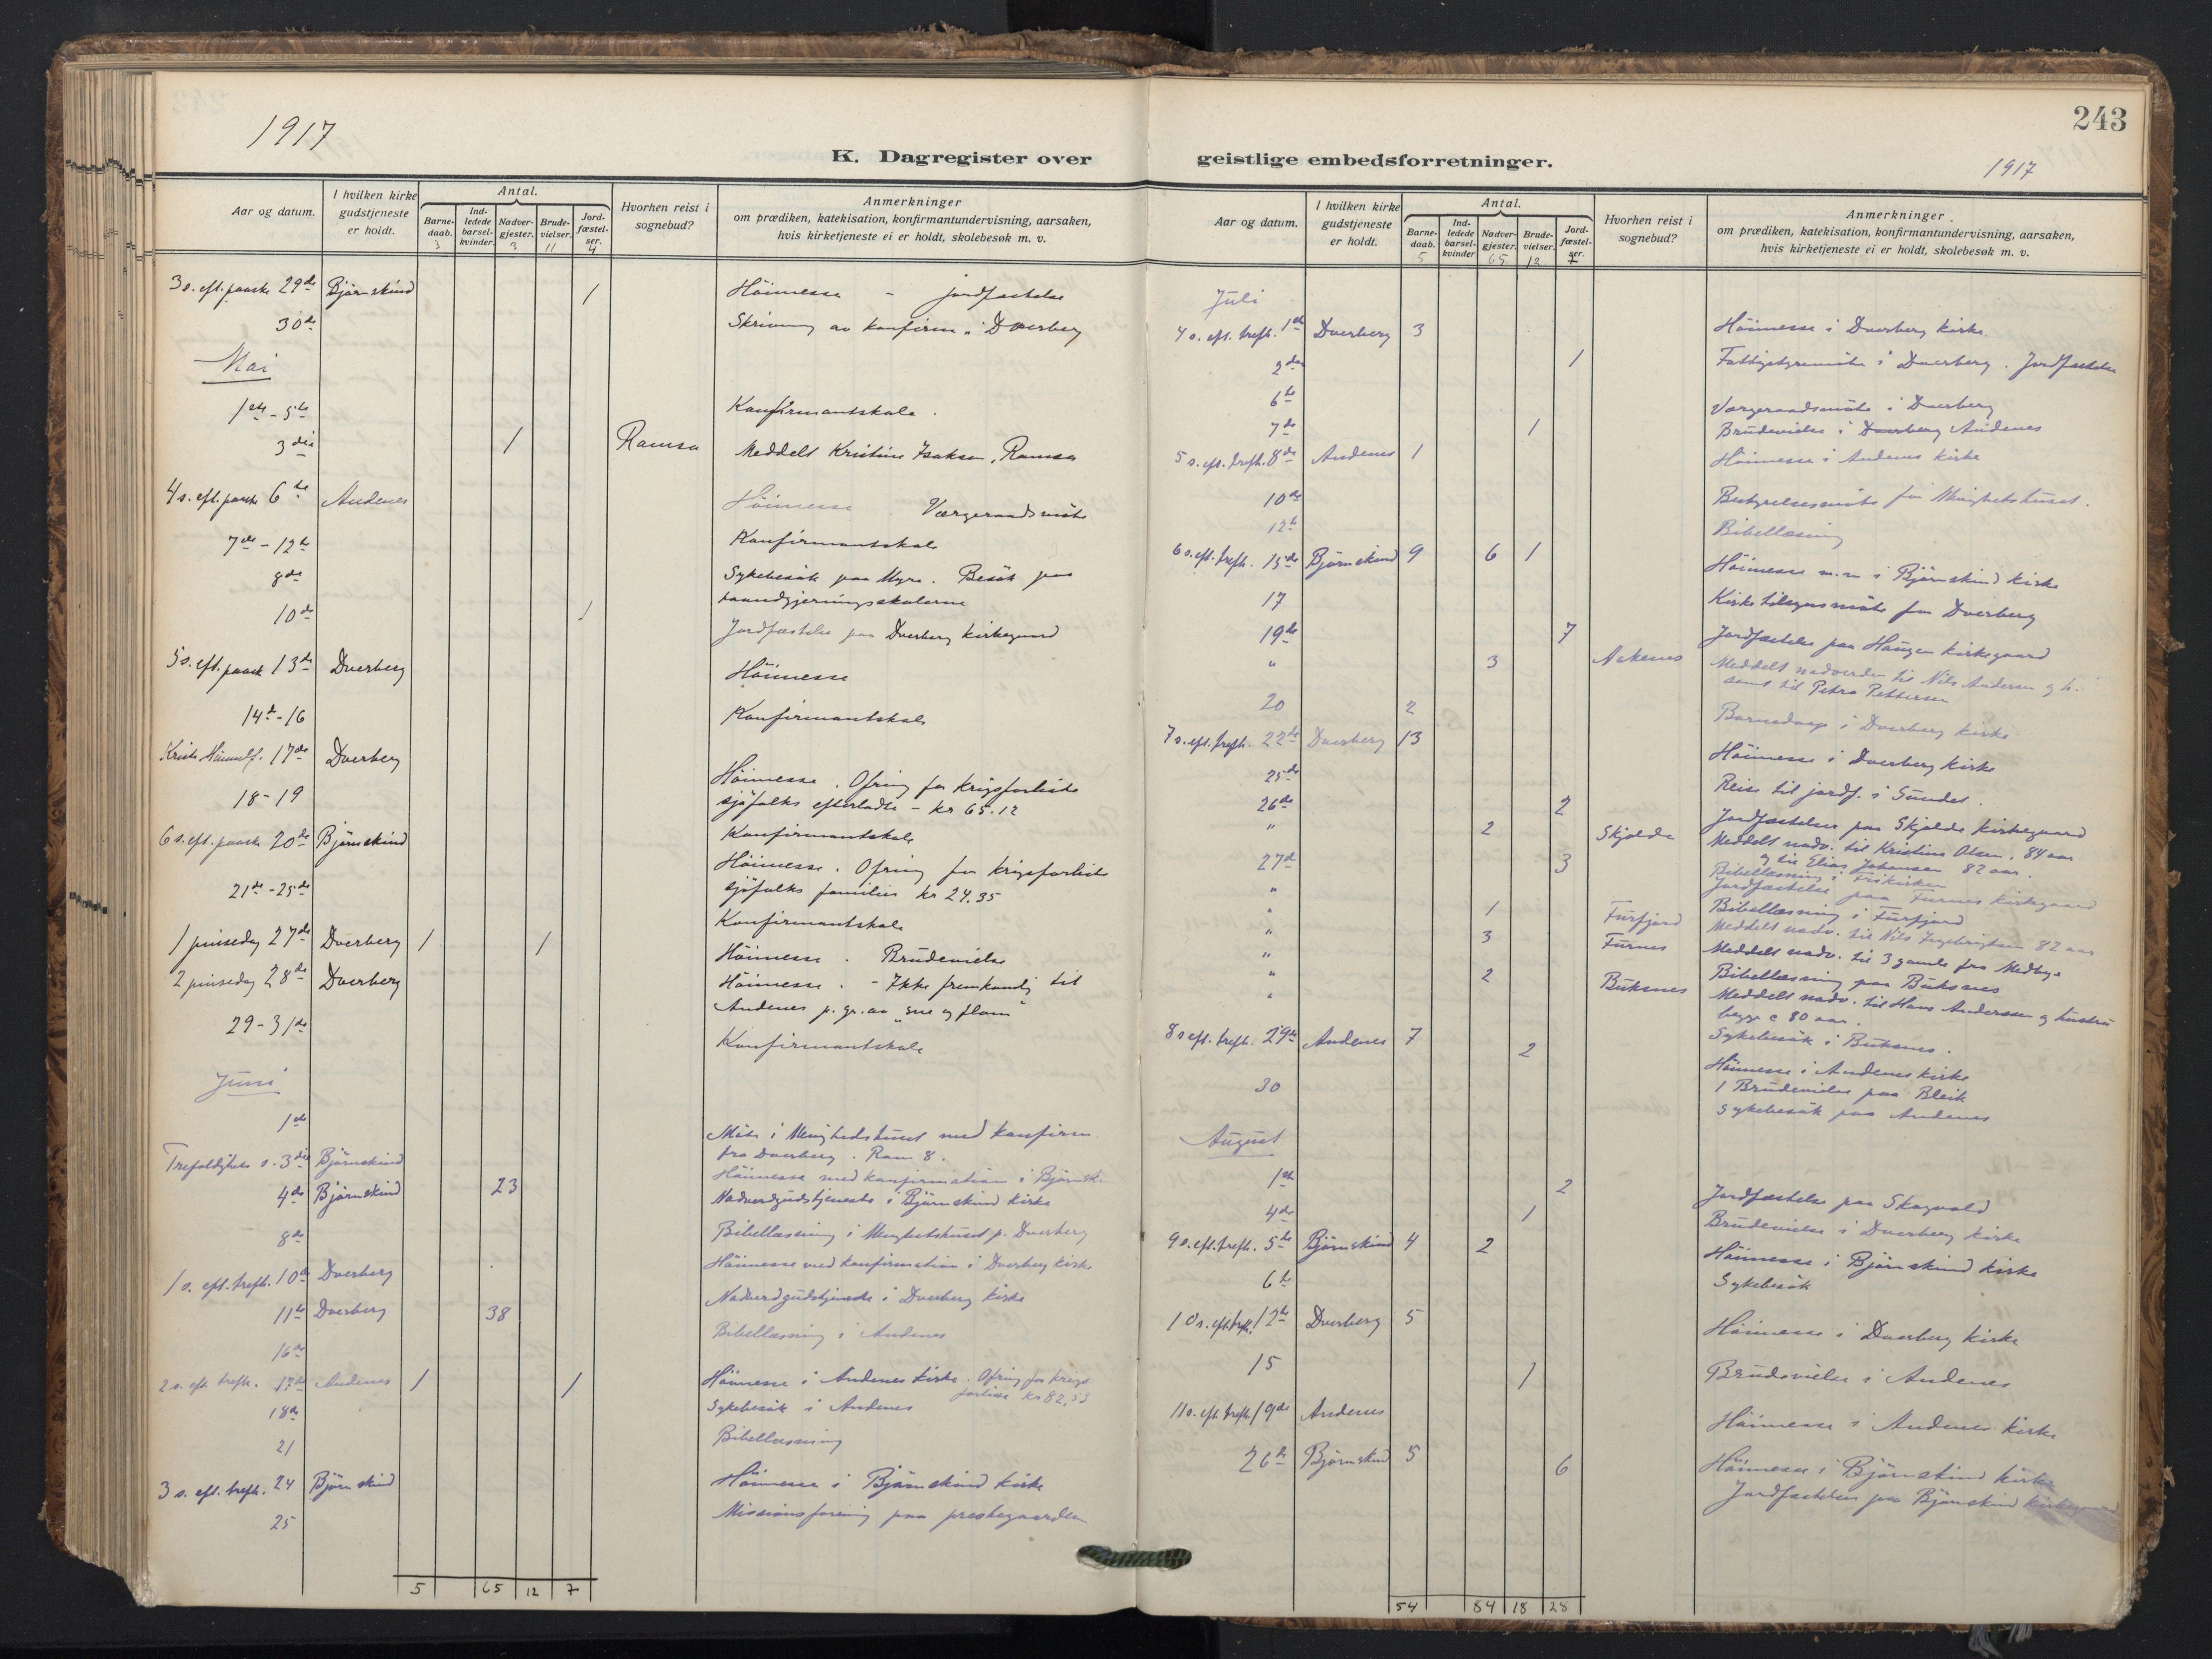 1917
K. Dagregister over
Aar og datum.
I hvilken kirke gudstjeneste er holdt.
Antal.
Barne-daab. 3
Ind-ledede barsel-kvinder.
Nadver-gjester. 3
Brude-vielser. 11
Jord-fæstel-ser. 4
Hvorhen reist i sognebud?
Anmerkninger
om prædiken, katekisation, konfirmantundervisning, aarsaken,
hvis kirketjeneste ei er holdt, skolebesøk m. v.
3 s. eft. paaske 29de Bjørnskind 1 Höimesse - jordfæstelse
30de Skrivning av konfirm. i Dverberg
Mai
1ste - 5te Konfirmantskole.
3die 1 Ramsa Meddelt Kristine Isaksen, Ramsa
4 s. eft. paaske 6te Andenes Höimesse Værgeraadsmöte
7de - 12te Konfirmantskole
8de Sykebesök paa Myre. Besök paa
haandgjerningsskolerne
10de 1 Jordfæstelse paa Dverberg kirkegaard
5 s. eft. paaske 13de Dverberg Höimesse
14de - 16 Konfirmantskole
Kristi Himmelf. 17de Dverberg Höimesse. Ofring for krigsforliste
sjöfolks efterladte - kr 65.12
18 - 19 Konfirmantskole
6 s. eft. paaske 20de Bjørnskind Höimesse. Ofring for krigsforliste
sjöfolks familier kr 24.35
21de - 25de Konfirmantskole
1 pinsedag 27de Dverberg 1 1 Höimesse. Brudevielse
2 pinsedag 28de Dverberg Höimesse. - Ikke fremkandig til
Andenes p. gr. av "sne og flom"
29 - 31te Konfirmantskole
Juni
1ste Möte i Menighedshuset med konfirm.
fra Dverberg. Rom 8.
Trefoldigheds s. 3die Bjørnskind Höimesse med konfirmation i Bjørnsk.
4de Bjørnskind 23 Nadverdgudstjeneste i Bjørnskind kirke
8de Bibellæsning i Menighetshuset p. Dverberg
1 s. eft. trefh. 10de Dverberg Höimesse med konfirmation i Dverberg kirke
11te Dverberg 38 Nadverdgudstjeneste i Dverberg kirke
16de Bibellæsning i Andenes
2 s. eft. trefh. 17de Andenes 1 1 Höimesse i Andenes kirke. Ofring for krigs
forliste kr 82,53
18de Sykebesök i Andenes
21 Bibellæsning
3 s. eft. trefh. 24 Bjørnskind Höimesse i Bjørnskind kirke
25 Missionsforening paa prestegaarden
5 65 12 7
243
geistlige embedsforretninger.
1917
Aar og datum.
I hvilken kirke gudstjeneste er holdt.
Antal.
Barne-daab. 5
Ind-ledede barsel-kvinder
Nadver-gjester. 65
Brude-vielser. 12
Jord-fæstel-ser. 7
Hvorhen reist i sognebud?
Anmerkninger.
om prædiken, katekisation, konfirmantundervisning, aarsaken,
hvis kirketjeneste ei er holdt, skolebesøk m. v.
Juli
4 s. eft. trefh. 1ste Dverberg 3 Höimesse i Dverberg kirke
2den 1 Fattigstyremöte i Dverberg. Jordfæstelse
6te Værgeraadsmöte i Dverberg
7de 1 Brudevielse i Dverberg Andenes
5 s. eft. trefh. 8de Andenes 1 Höimesse i Andenes kirke
10de Bestyrelsesmöte for Menighetshuset.
12te Bibellæsning
6 s. eft. trefh. 15de Bjørnskind 9 6 1 Höimesse m. m i Bjørnskind kirke
17 Kirketilsynsmöte for Dverberg
19de 7 Jordfæstelse paa Haugen kirkegaard
" 3 Aakenes Meddelt nadverden til Nils Andersen og h.
samt til Petra Pettersen
20 2 Barnedaap i Dverberg kirke
7 s. eft. trefh. 22de Dverberg 13 Höimesse i Dverberg kirke
25de Reise til jordf. i Sundet.
26de 2 Jordfæstelser paa Skjolde kirkegaard
" 2 Skjolde Meddelt nadv. til Kristine Olsen, 84 aar
og til Elias Johansen 82 aar.
27de 3 Bibellæsning i Friskirken
" Jordfæstelse paa Furnes kirkegaard
" Bibellæsning i Furfjord
1 Furfjord Meddelt nadv. til Nils Ingebrigtsen 82 aar
" 3 Furnes Meddelt nadv. til 3 gamle fra Medbye
" Bibellæsning paa Buksnes
" 2 Buksnes Meddelt nadv. til Hans Andersen og hustru
begge c 80 aar.
" Sykebesök i Buksnes.
8 s eft. trefh. 29de Andenes 7 2 Höimesse i Andenes kirke
1 Brudevielse paa Bleik
30 Sykebesök paa Andenes
August
1ste 2 Jordfæstelse paa Skogvold
4de 1 Brudevielse i Dverberg kirke
9 s. eft. trefh. 5te Bjørnskind 4 2 Höimesse i Bjørnskind kirke
6te Sykebesök
10 s. eft. trefh. 12te Dverberg 5 Höimesse i Dverberg kirke
15 1 Brudevielse i Andenes
11 s. eft. trefh. 19de Andenes Höimesse i Andenes kirke
26de Bjørnskind 5 6 Höimesse i Bjørnskind kirke
Jordfæstelser paa Bjørnskind kirkegaard
54 84 18 28